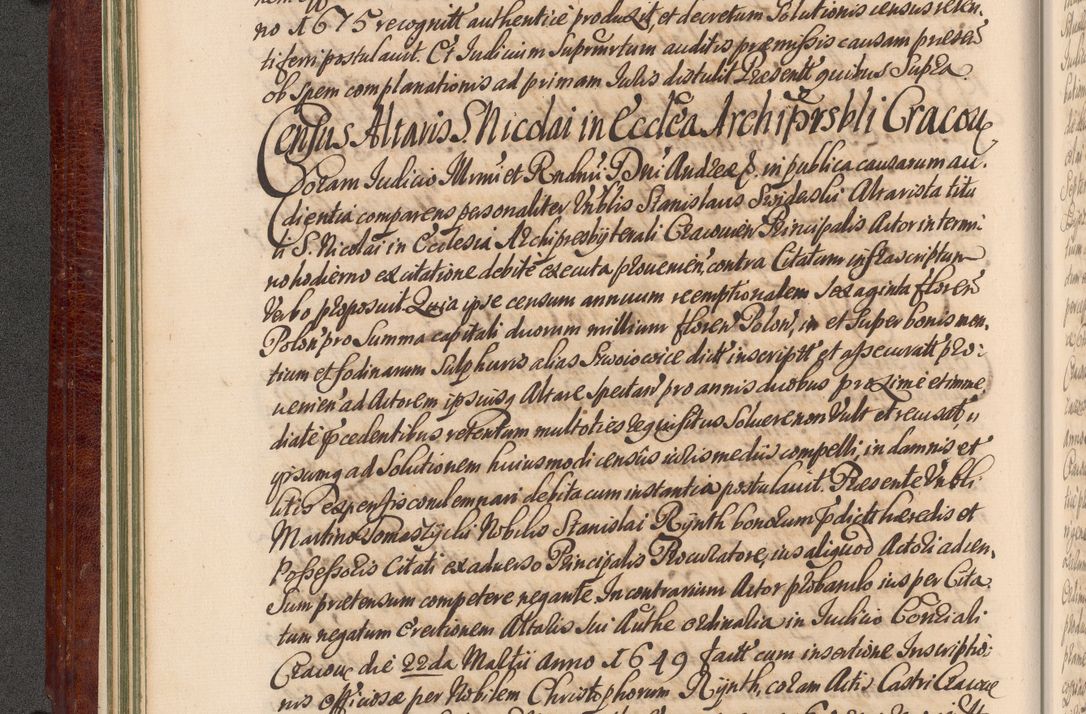 no 1675 recognitt authenticè produxit, et decretum Solutionis census reten-
ti ferri postulauit. Et Iudicium Supremum auditis præmissis causam præsen
ob spem complanationis ad primam Iuris distulit Præsentt quibus Supra
Census Altaris S. Nicolai in Ecclea Archiprsbli Cracou
Coram Iudicio Illrmi et Rndmi Dni Andreæ E. in publica causarum au-
dientia comparens personaliter Vnblis Stanislaus Swiderski Altarista titu
li S. Nicolai in Ecclesia Archipresbÿterali Cracouien Principalis Actor in termi-
no hodierno ex citatione debitè executa prouenien contra Citatum infrascriptum
Verbo proposuit Quia ipse censum annuum reemptionalem Sexaginta floren
Polon pro Summa capitali duorum millium floren Polon, in et super bonis mon-
tium et fodinarum Sulphuris alias Swoszowice dictt inscriptt et assecuratt pro-
uenien ad Actorem ipsiusq Altare spectan pro annis duobus proximè et imme
diatè præcedentibus retentum multoties requisitus Soluere non Vult et recusat,
ipsumq ad Solutionem huiusmodi census iuris medius compelli, in damnis et
litis expensis condemnari debita cum instantia postulauit. Præsente Vnbli
Martino Tomaszÿcki Nobilis Stanislai Rÿnth bonorum prædictt hæredis et
Possessoris Citati ex aduerso Principalis Procuratore, ius aliquod Actori ad cen-
sum prætensum competere negante. In contrarium Actor probando ius per Cita
tum negatum Erectionem Altaris sui Authe ordinaria in Iudicio Consiali
Cracou die 22da Martii Anno 1649 factt cum insertione Inscriptio-
nis officiosæ per Nobilem Christophorum Rÿnth, coram Actis Castri Cracou